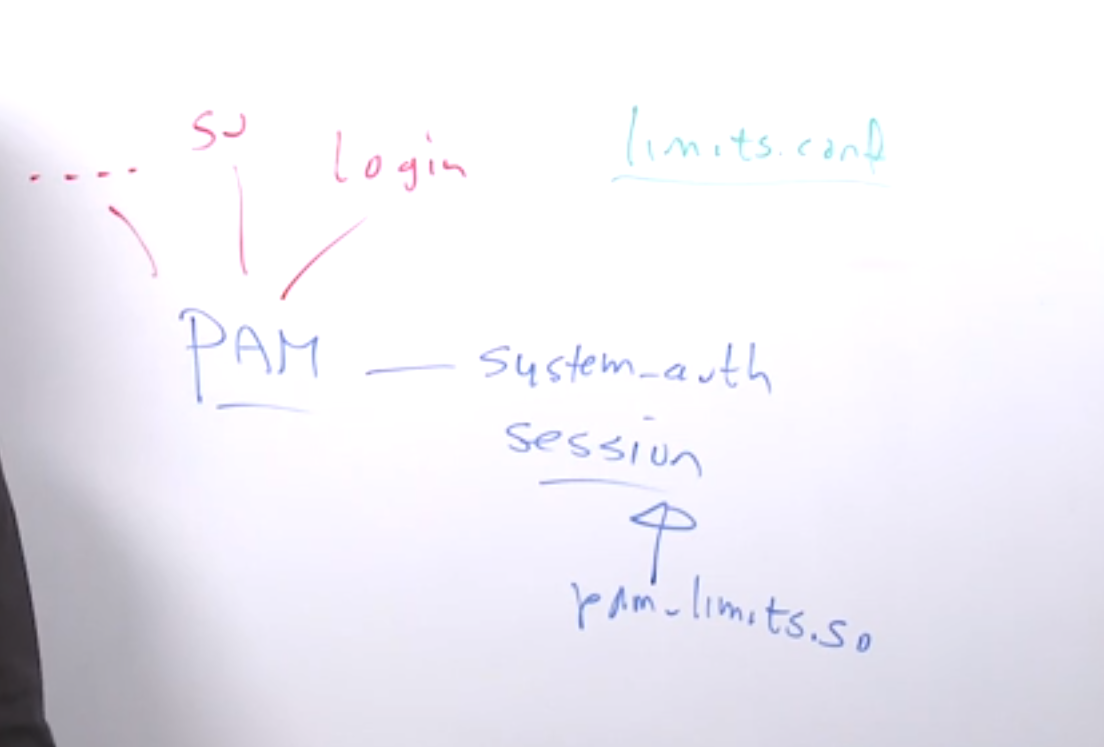 su
login
limits.conf
....
PAM — system_auth
session
pam_limits.so